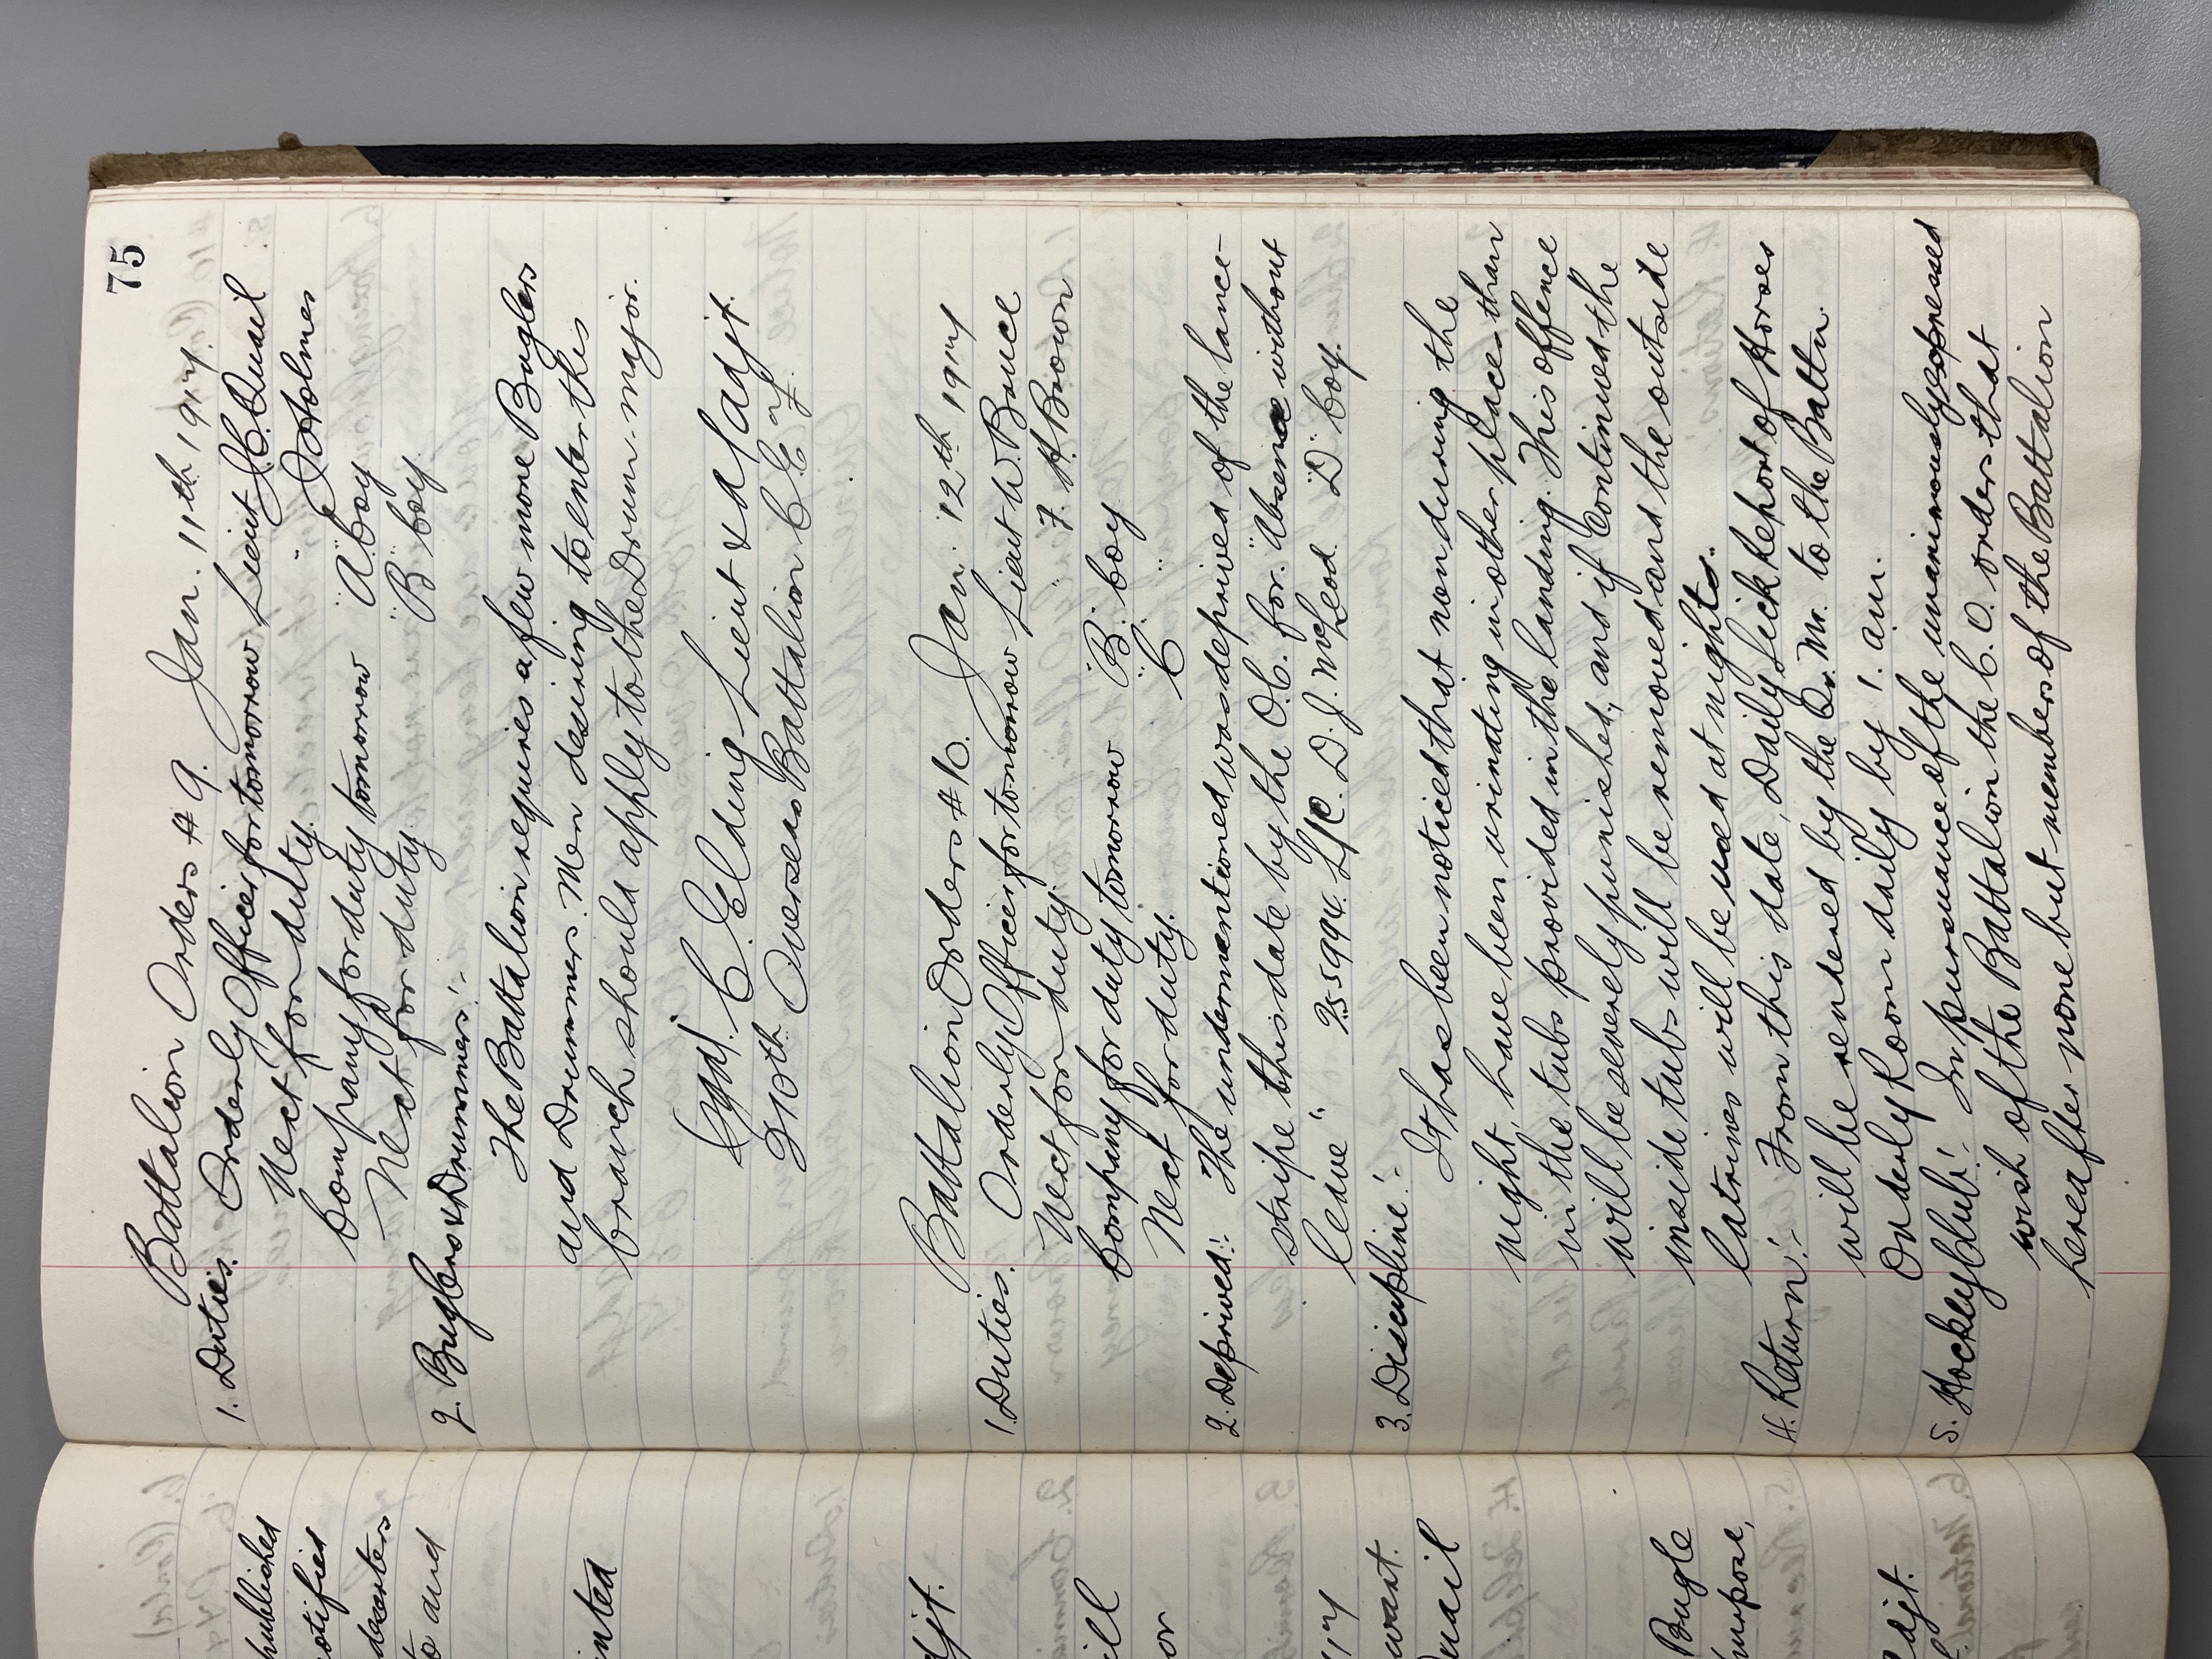 75
Battalion Orders # 9. Jan. 11th 1917.
1. Duties. Orderly Officer for tomorrow Lieut J.C. Quail
Next for duty. " J. Holmes
Company for duty tomorrow "A" Coy
Next for duty. "B" Coy.
2. Buglers & Drummers:-
The Battalion requires a few more Buglers
and Drummers. Men desiring to enter this
branch should apply to the Drum-major.
Sgd. C. Elding Lieut & a/adjt.
210th Overseas Battalion C.E.F.
Battalion Orders # 10. Jan. 12th 1917
1. Duties. Orderly Officer for tomorrow Lieut W. Bruce
Next for duty. " F. H. Brown
Company for duty tomorrow "B" Coy
Next for duty. "C"
2. Deprived:- The undermentioned was deprived of the lance-
stripe this date by the O.C. for "Absence without
leave". 255994. L/C. D.J. McLeod. "D" Coy.
3. Discipline:-
It has been noticed that men during the
night, have been urinating in other places than
in the tubs provided in the landing. This offence
will be severely punished, and if continued the
inside tubs will be removed and the outside
latrines will be used at nights.
4. Return:- From this date, Daily Sick Report of Horses
will be rendered by the Q.M. to the Battn.
Orderly Room daily by 1. a.m.
5. Hockey Club:- In pursuance of the unanimously expressed
wish of the Battalion the C.O. orders that
hereafter none but members of the Battalion
published
otified
deserters
to and
inted
djt.
ill
or
17
uail
Bugle
urpose,
adjt.